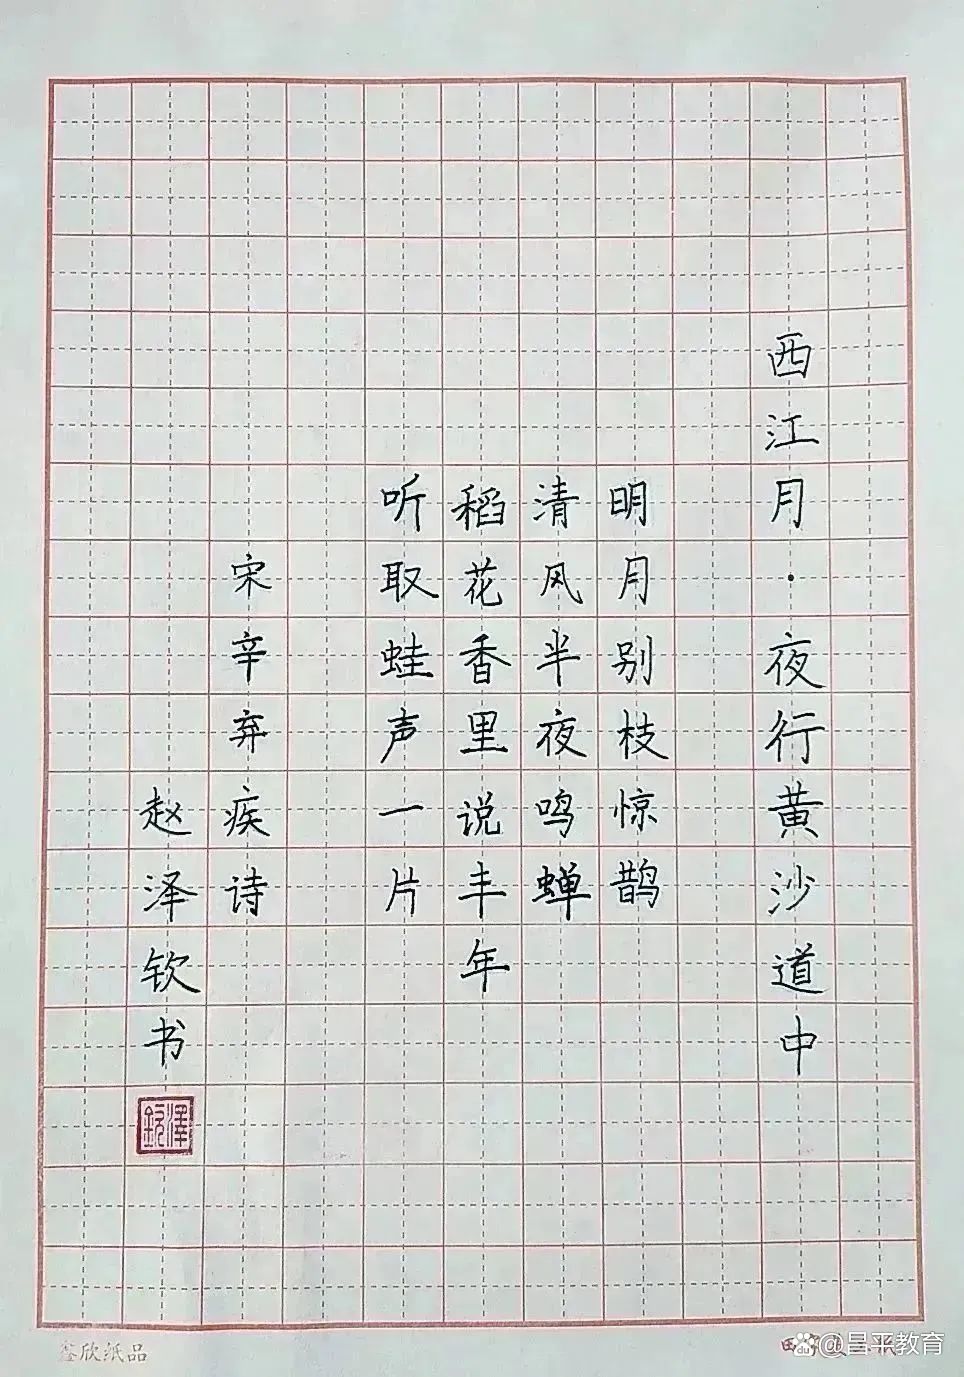 西江月·夜行黄沙道中
明月别枝惊鹊
清风半夜鸣蝉
稻花香里说丰年
听取蛙声一片
宋辛弃疾诗
赵泽钦书
澤欽
鑫欣纸品
昌平教育